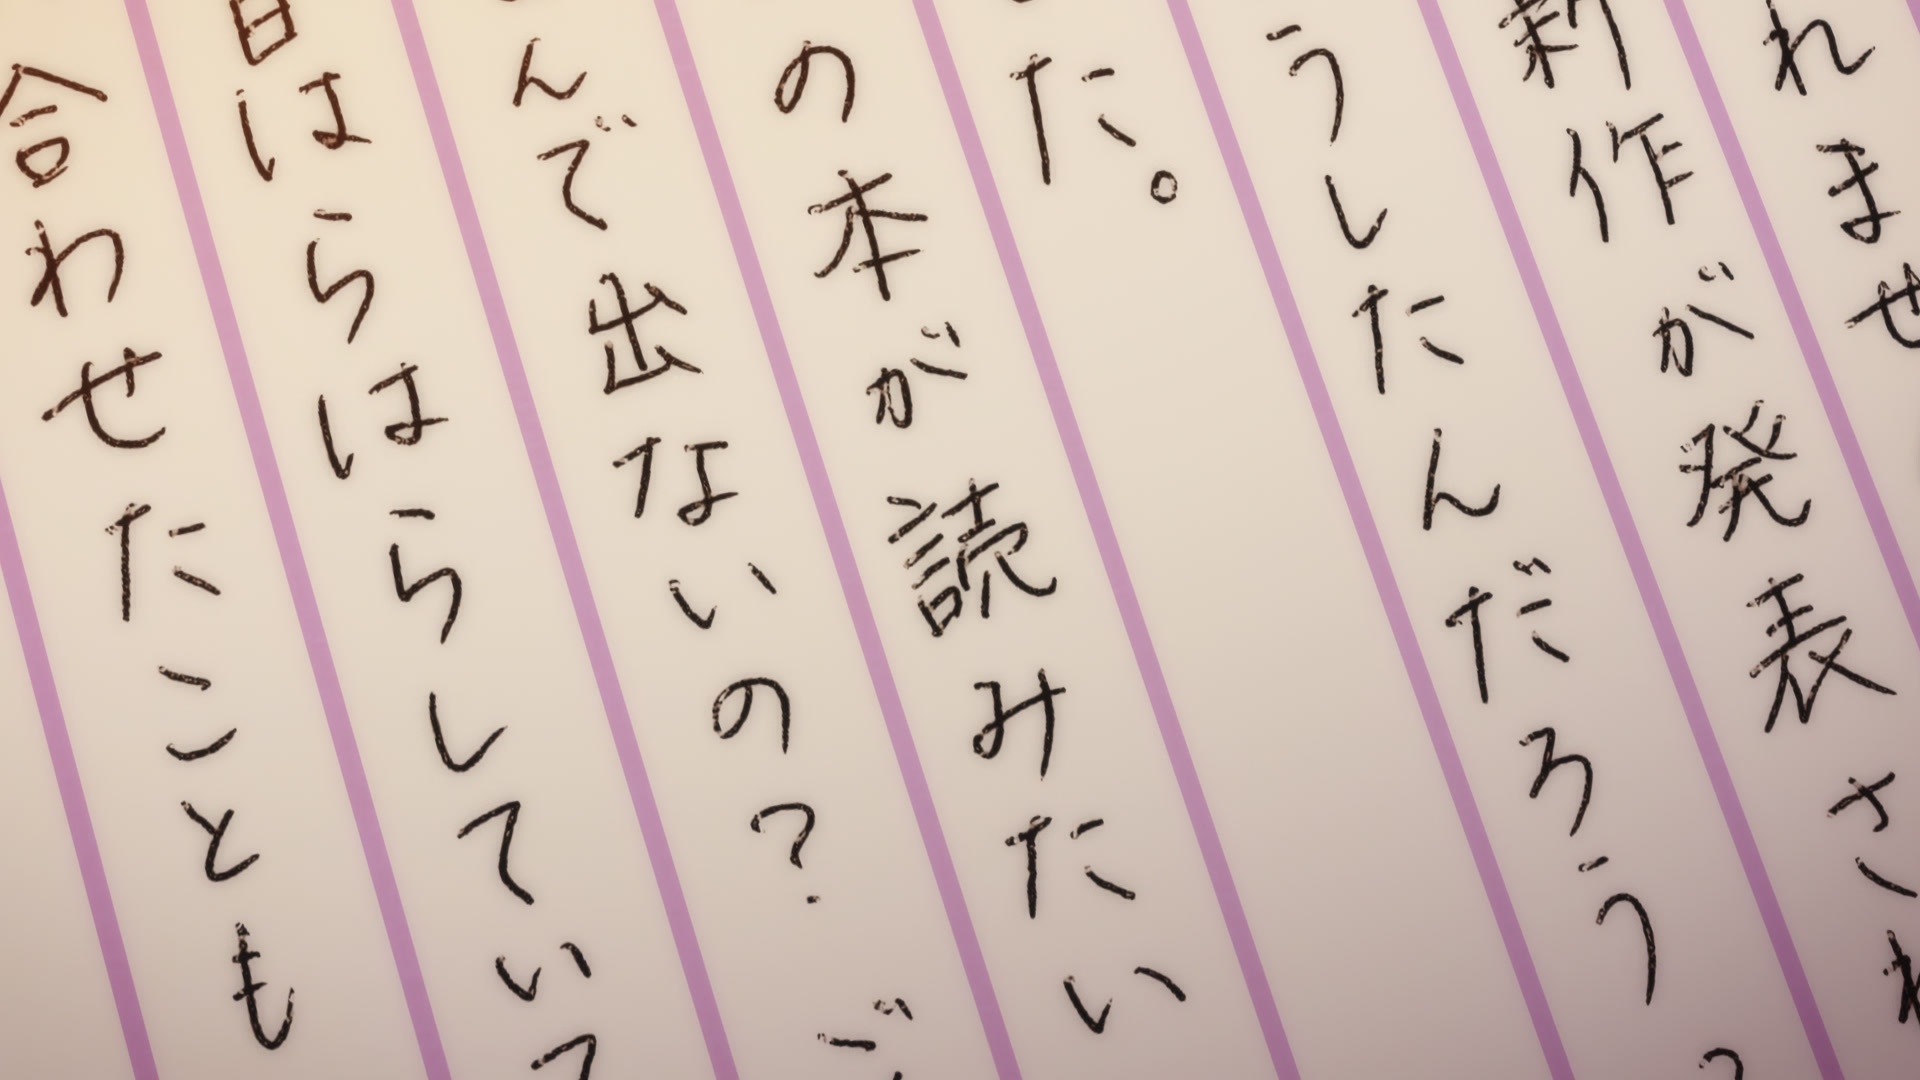 れませ
新作が発表され
うしたんだろう?
た。
の本が読みたい
んで出ないの?
日はらはらしていて
合わせたことも